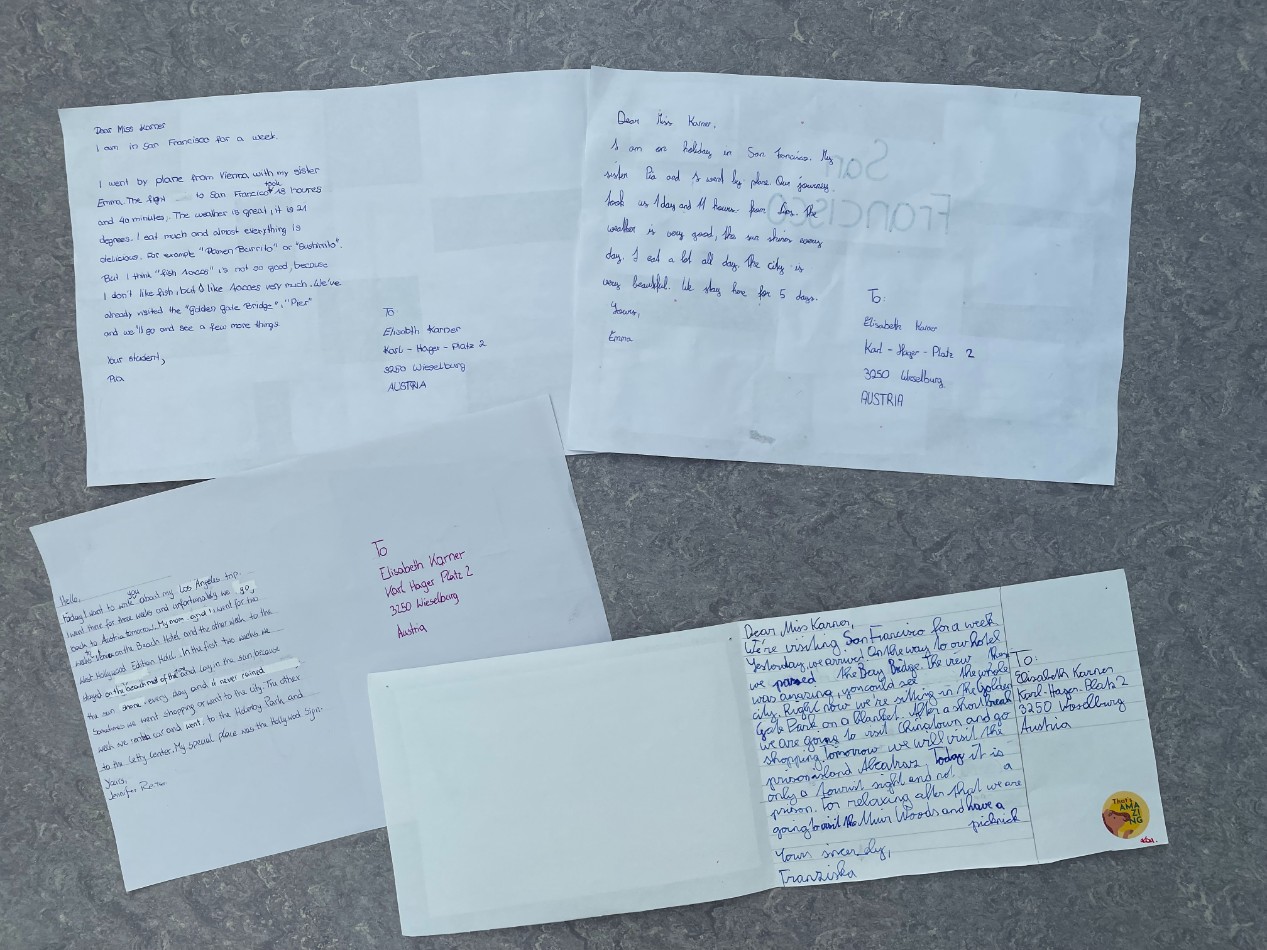 Dear Miss Karner
I am in San Francisco for a week.
I went by plane from Vienna with my sister
Emma. The fight to San Francisco took 18 hounes
and 40 minutes. The weather is great, it is 21
degrees. I eat much and almost everything is
delicious. For example "Ramen Burrito" or "Sushirrito".
But I think "fish Tacoes" is not so good, because
I don't like fish, but I like Tacoes very much. We've
already visited the "Golden Gate Bridge", "Pier"
and we'll go and see a few more things.
Your student,
Pia
To
Elisabeth Karner
Karl - Hager - Platz 2
3250 Wieselburg
AUSTRIA
Dear Miss Karner,
I am on holiday in San Francisco. My
sister Pia and I went by plane. Our journey
took us 1 day and 11 hours from
the
weather is very good, the sun shines every
day. I eat a lot all day. The city is
very beautiful. We stay here for 5 days.
Yours,
Emma
San
Francisco
To:
Elisabeth Karner
Karl - Hager - Platz 2
3250 Wieselburg
AUSTRIA
Hello,
today I want to write you about my Los Angeles trip.
I went there for three weeks and unfortunately we go
back to Austria tomorrow. My mom and I went for two
weeks on the Beach Hotel and the other week to the
West Hollywood Edition Hotel. In the first two weeks we
stayed on the beach and lay in the sun because
the sun shone every day and it never rained
Sometimes we went shopping or went to the city. The other
week we car and went to the Holmby Park and
to the Getty Center. My special place was the Hollywood Sign.
Yours,
Jennifer
To
Elisabeth Karner
Karl Hager Platz 2
3250 Wieselburg
Austria
Dear Miss Karner,
We're visiting San Francisco for a week
Yesterday, we arrived. On the way to our hotel
we passed the Bay Bridge. The view
was amazing, you could see the whole
city. Right now we're sitting in the Golden
Gate Park on a blanket. After a short break
we are going to visit Chinatown and go
shopping. Tomorrow we will visit the
prison island Alcatraz. Today it is
only a tourist sight and not a
prison. For relaxing after that we are
going to visit the Muir Woods and have a
picknick
Yours sincerely,
Franziska
To:
Elisabeth Karner
Karl-Hager-Platz 2
3250 Wieselburg
Austria
That's
AMA
ZI
NG